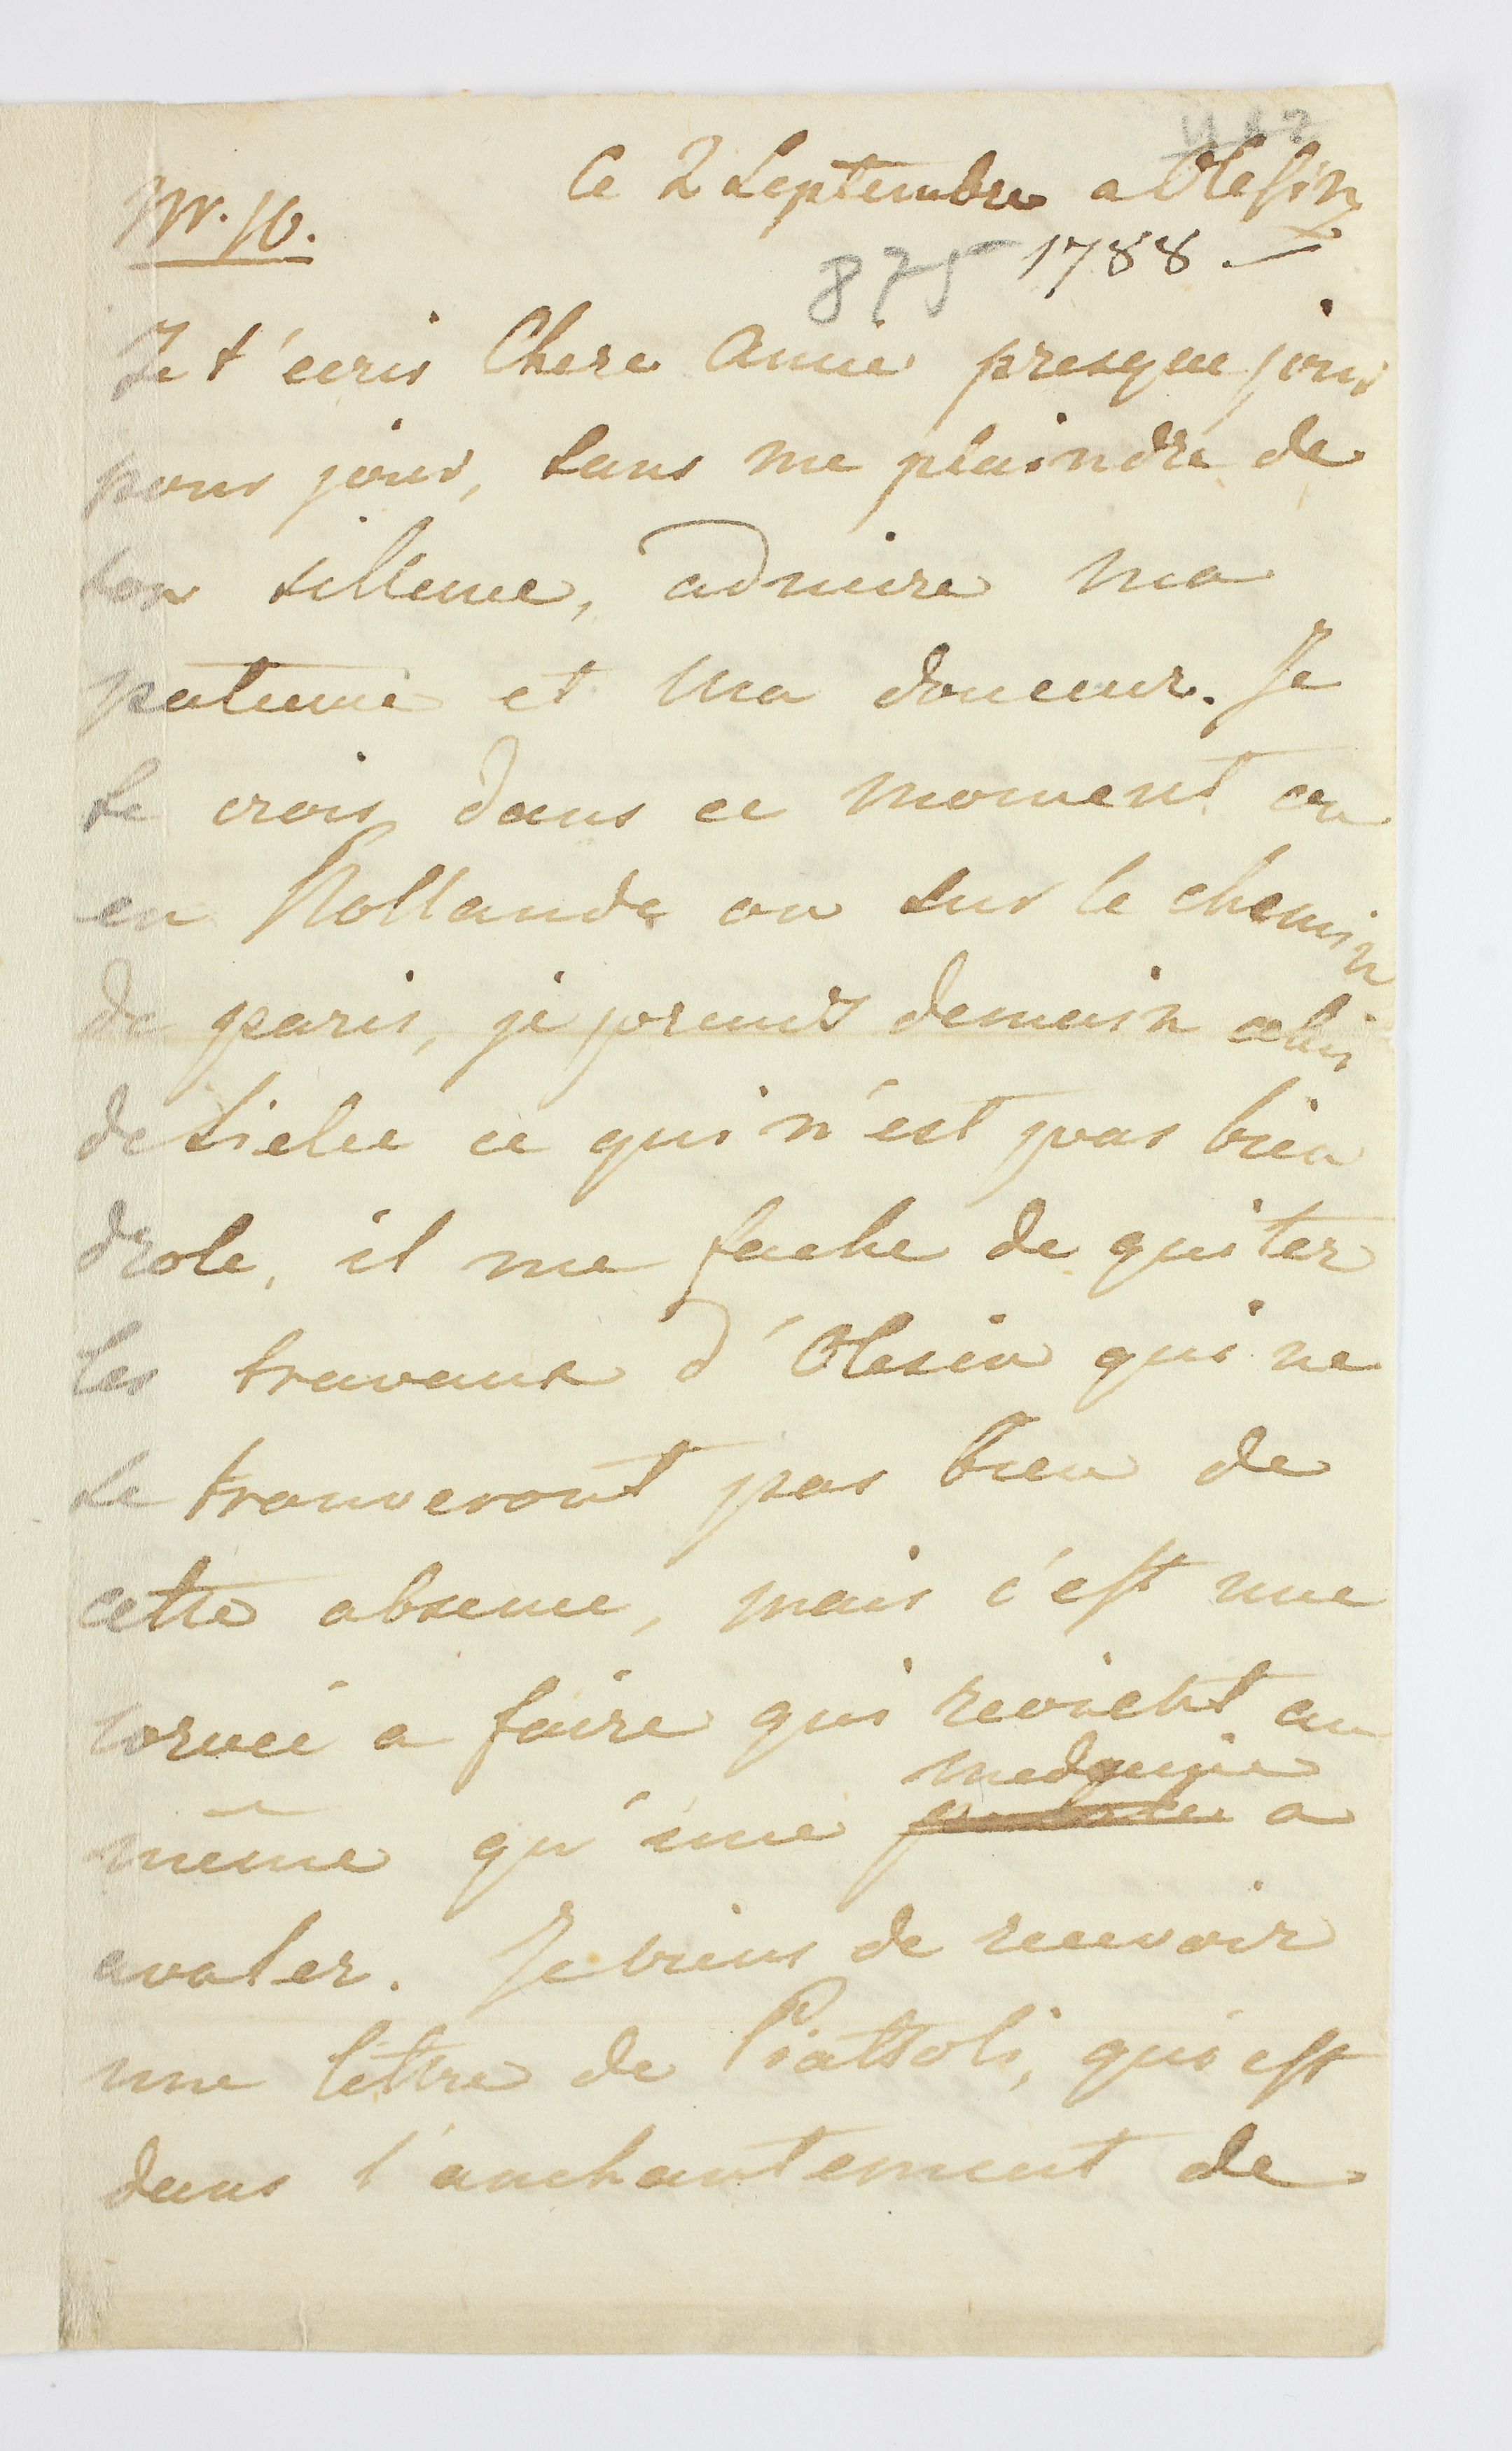 Ce 2 Septembre a Olesin
Nr. 10.
875 1788. —
Je t'ecris Chere Amie presque jour
pour jour, sans me plaindre de
ton sillence, admire ma
patience et ma douceur. Je
te crois dans ce moment ou
en Hollande ou sur le chemin
de paris, je prends demain celui
de Sielce ce qui n'est pas bien
drole, il me fache de quiter
les travaux d'Olesin qui ne
se trouveront pas bien de
cette absence, mais c'est une
corvee a faire qui revient au
même qu'une medecine a
avaler. Je viens de recevoir
une lettre de Piattoli, qui est
dans l'anchantement de